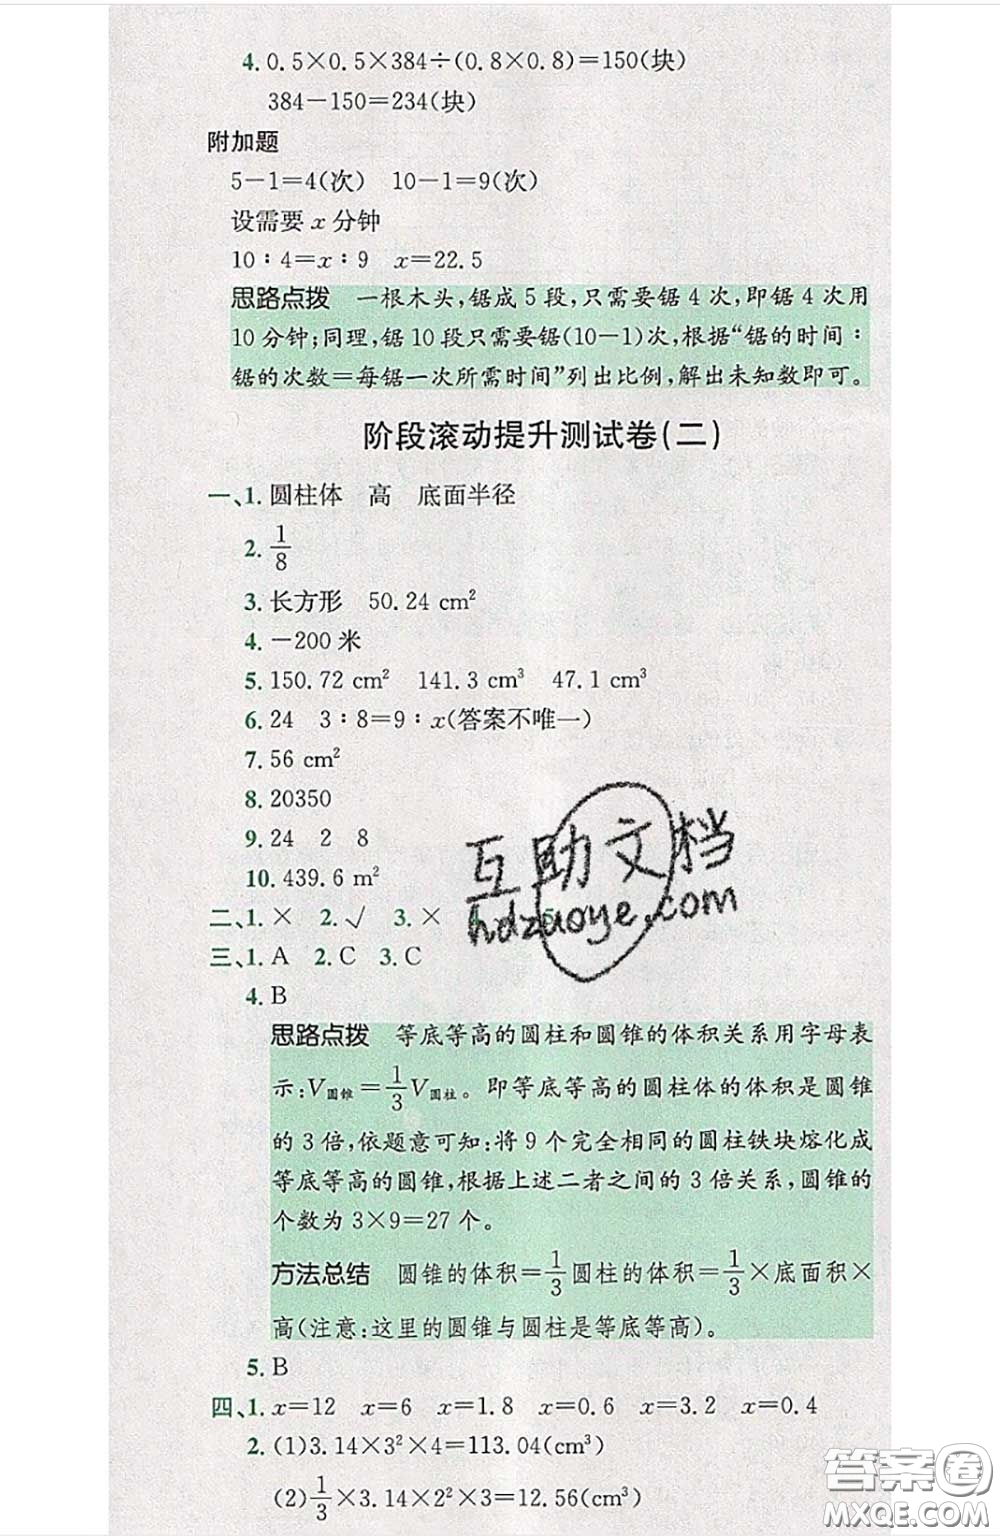 4. 0.5×0.5×384÷(0.8×0.8)=150(块)
384-150=234(块)
附加题
5-1=4(次) 10-1=9(次)
设需要 x 分钟
10∶4=x∶9 x=22.5
思路点拨 一根木头,锯成 5 段,只需要锯 4 次,即锯 4 次用
10 分钟;同理,锯 10 段只需要锯(10-1)次,根据“锯的时间∶
锯的次数=每锯一次所需时间”列出比例,解出未知数即可。
阶段滚动提升测试卷(二)
一、1. 圆柱体 高 底面半径
2. 1/8
3. 长方形 50.24 cm²
4. -200 米
5. 150.72 cm² 141.3 cm³ 47.1 cm³
6. 24 3∶8=9∶x(答案不唯一)
7. 56 cm²
8. 20350
9. 24 2 8
10. 439.6 m²
二、1. × 2. √ 3. × 5.
三、1. A 2. C 3. C
4. B
思路点拨 等底等高的圆柱和圆锥的体积关系用字母表
示:V圆锥=1/3V圆柱。即等底等高的圆柱体的体积是圆锥
的 3 倍,依题意可知:将 9 个完全相同的圆柱铁块熔化成
等底等高的圆锥,根据上述二者之间的 3 倍关系,圆锥的
个数为 3×9=27 个。
方法总结 圆锥的体积=1/3圆柱的体积=1/3×底面积×
高(注意:这里的圆锥与圆柱是等底等高)。
5. B
四、1. x=12 x=6 x=1.8 x=0.6 x=3.2 x=0.4
2. (1)3.14×3²×4=113.04(cm³)
(2)1/3×3.14×2²×3=12.56(cm³)
互助文档
hdzuoye.com
答案圈
MXQE.COM